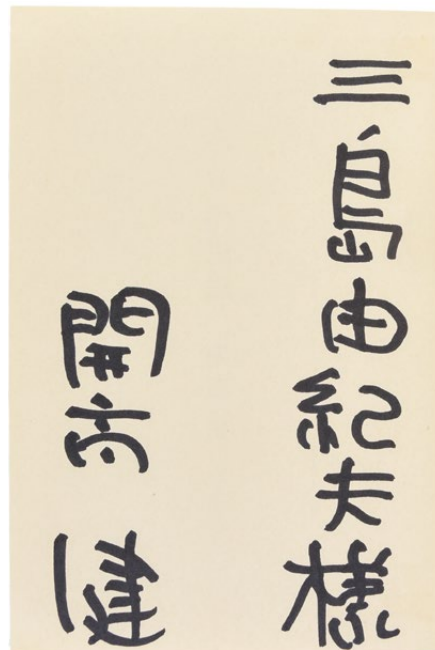 三島由紀夫様
開高健